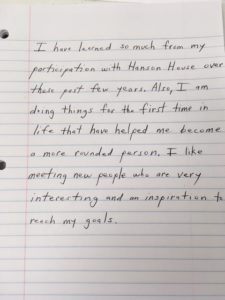 I have learned so much from my
participation with Hanson House over
these past few years. Also, I am
doing things for the first time in
life that have helped me become
a more rounded person. I like
meeting new people who are very
interesting and an inspiration to
reach my goals.